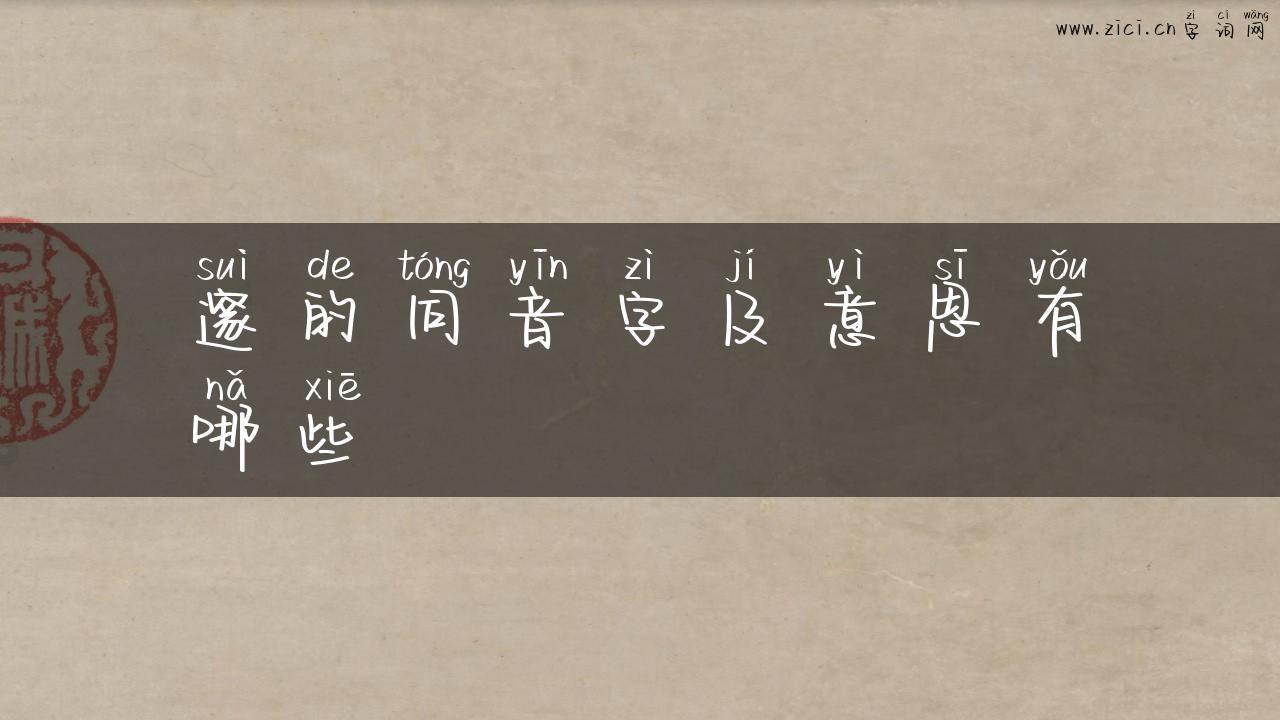 zì cí wǎng
www.zici.cn 字词网
suì de tóng yīn zì jí yì sī yǒu
邃的同音字及意思有
nǎ xiē
哪些